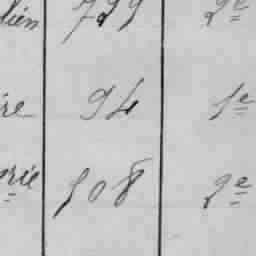 lien 729 2e
re 94 1e
rie 508 2e